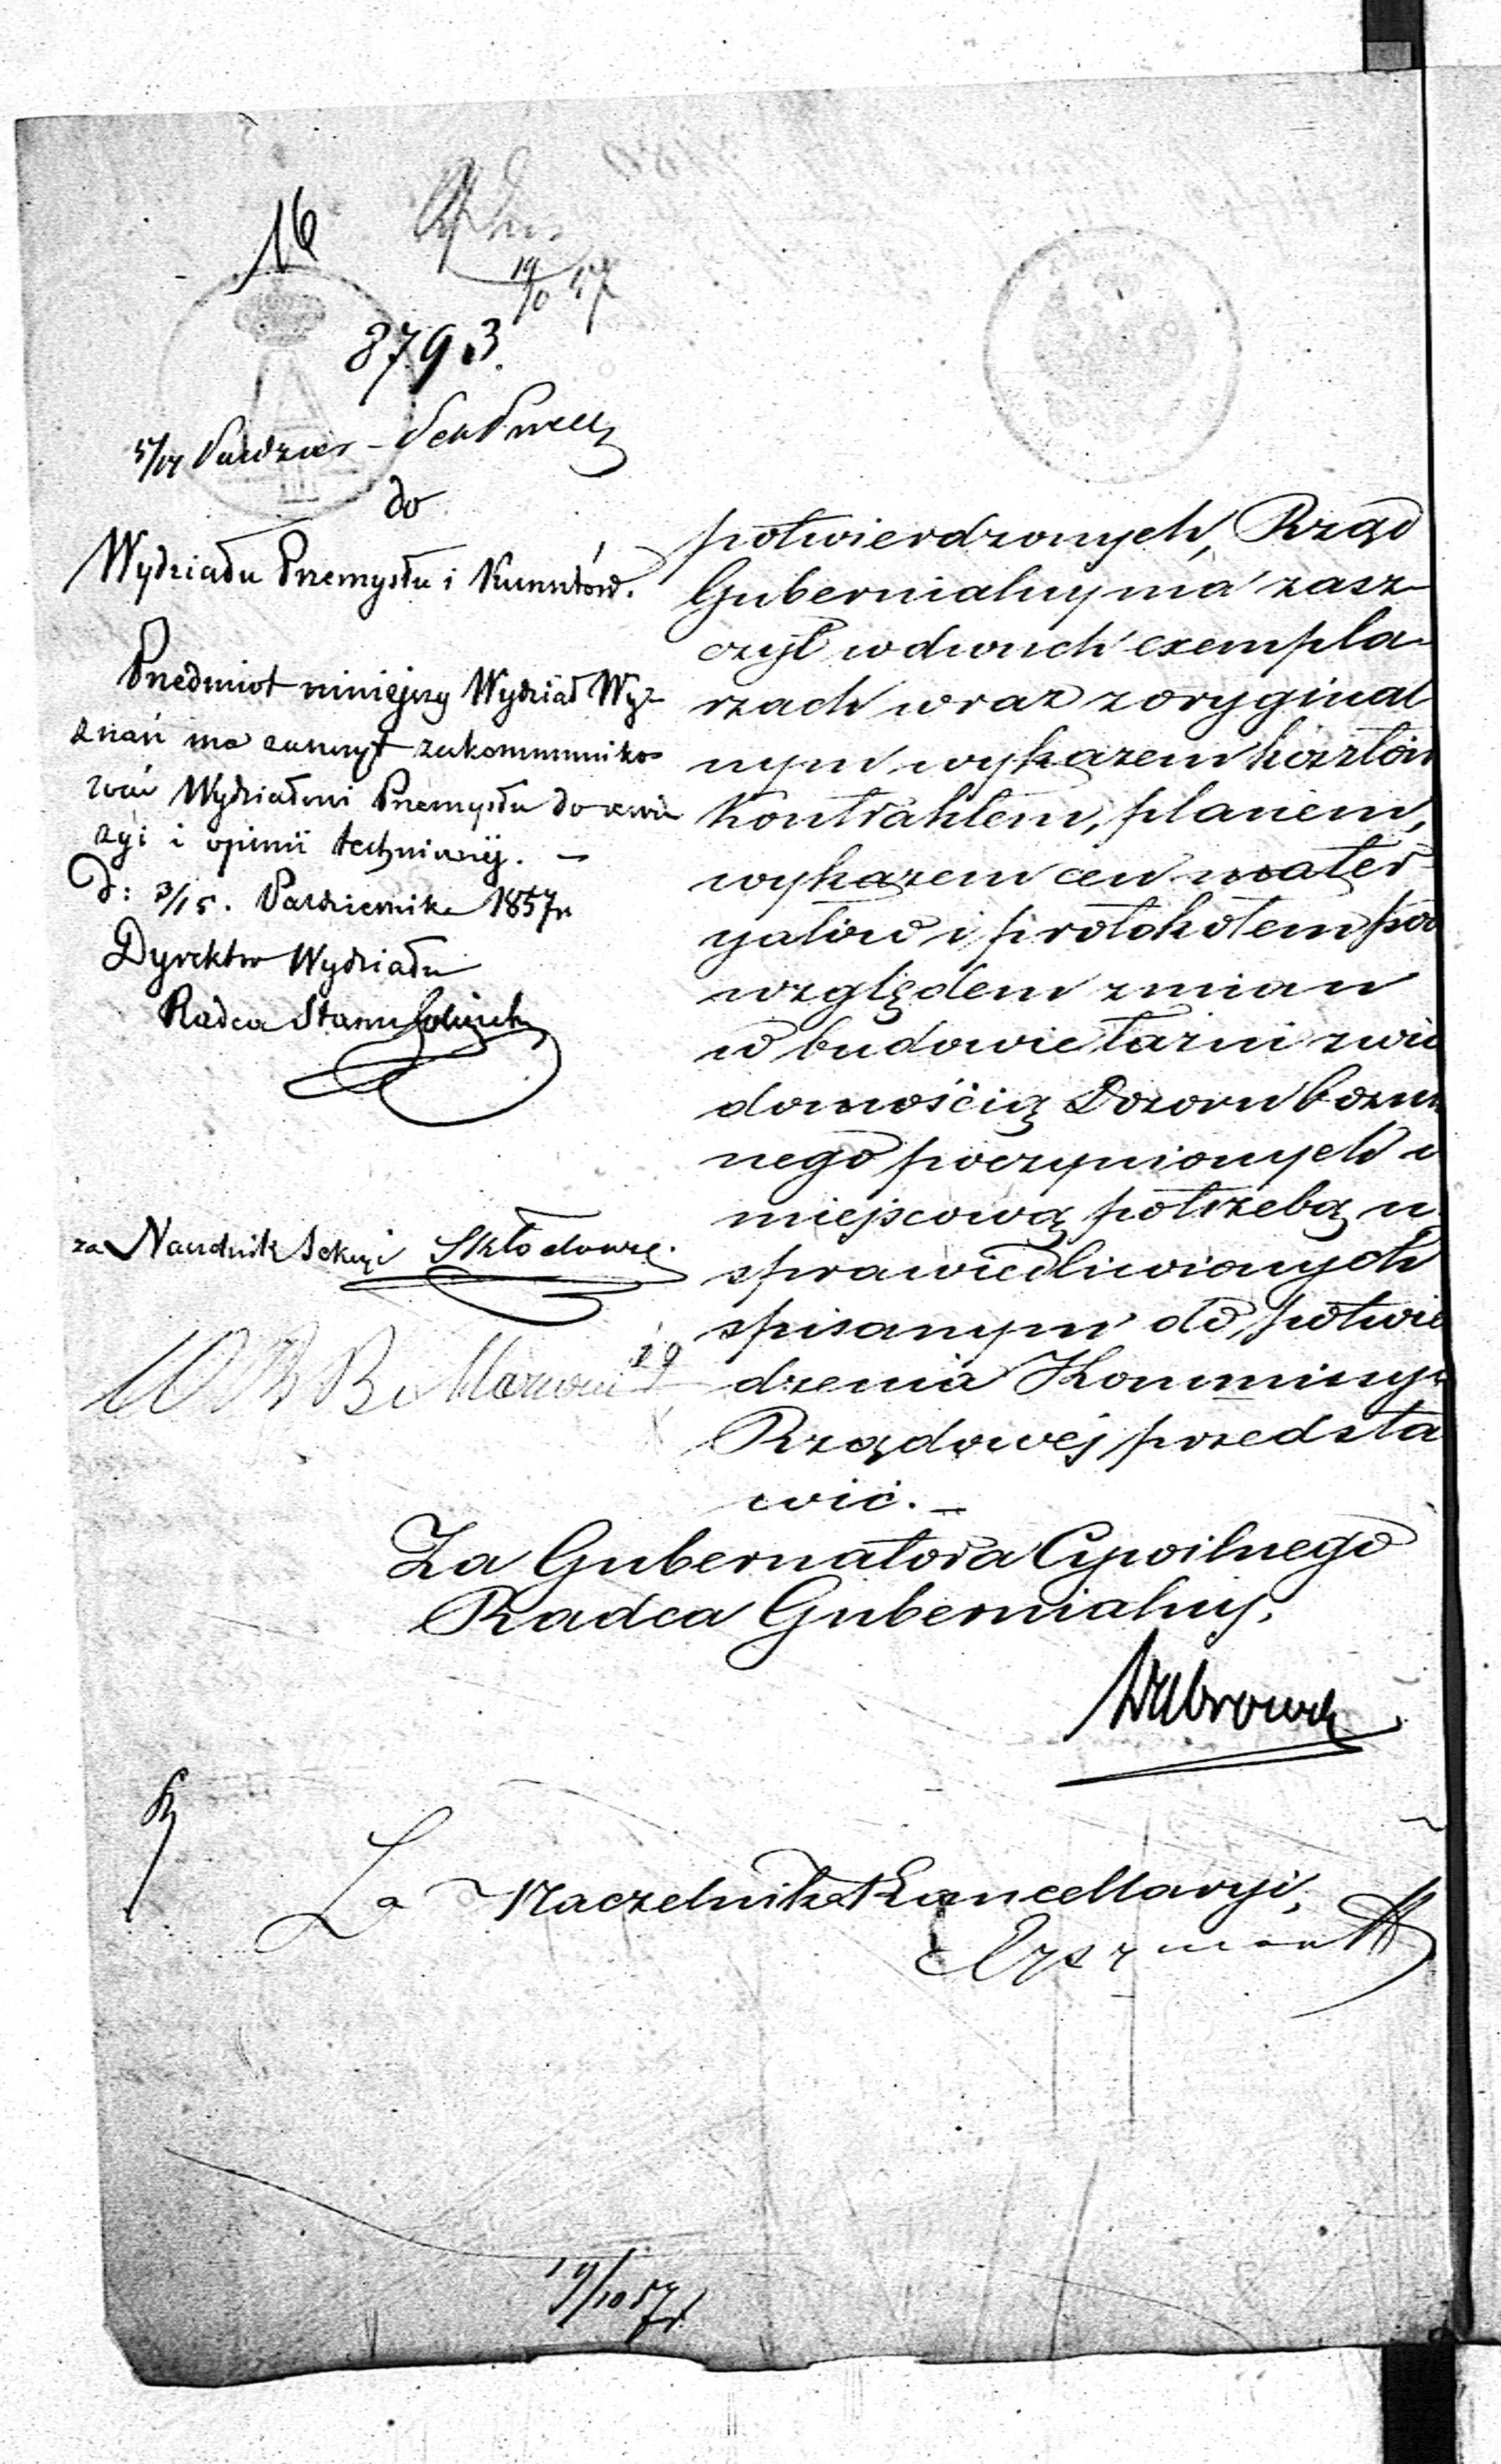 16
19/10 57
8793.
5/17 Paździer
do
Wydziału Przemysłu i Kunsztów.
Przedmiot niniejszy Wydział Wy-
znań ma zaszczyt zakommuniko-
wać Wydziałowi Przemysłu do rewi-
zyi i opinii technicznéj. —
D: 3/15. Październike 1857 r
Dyrektor Wydziału
Radca Stanu
za Naczelnik Sekcyi Skłodowski
potwierdzonych, Rząd
Gubernialny ma zasz-
czyt w dwuch exempla-
rzach wraz z oryginal
nym wykazem kosztów
Kontraktem, planem,
wykazem cen mater-
yałów i protokołem pod
względem zmian
w budowie łaźni z wia
domością Dozoru bożni
nego poczynionych i
miejscową potrzebą u
sprawiedliwionych
spisanym do potwier
dzenia Kommissyi
Rządowéj przedsta
wić. —
Za Gubernatora Cywilnego
Radca Gubernialny,
Za Naczelnika Kancellaryi,
19/10 57 r